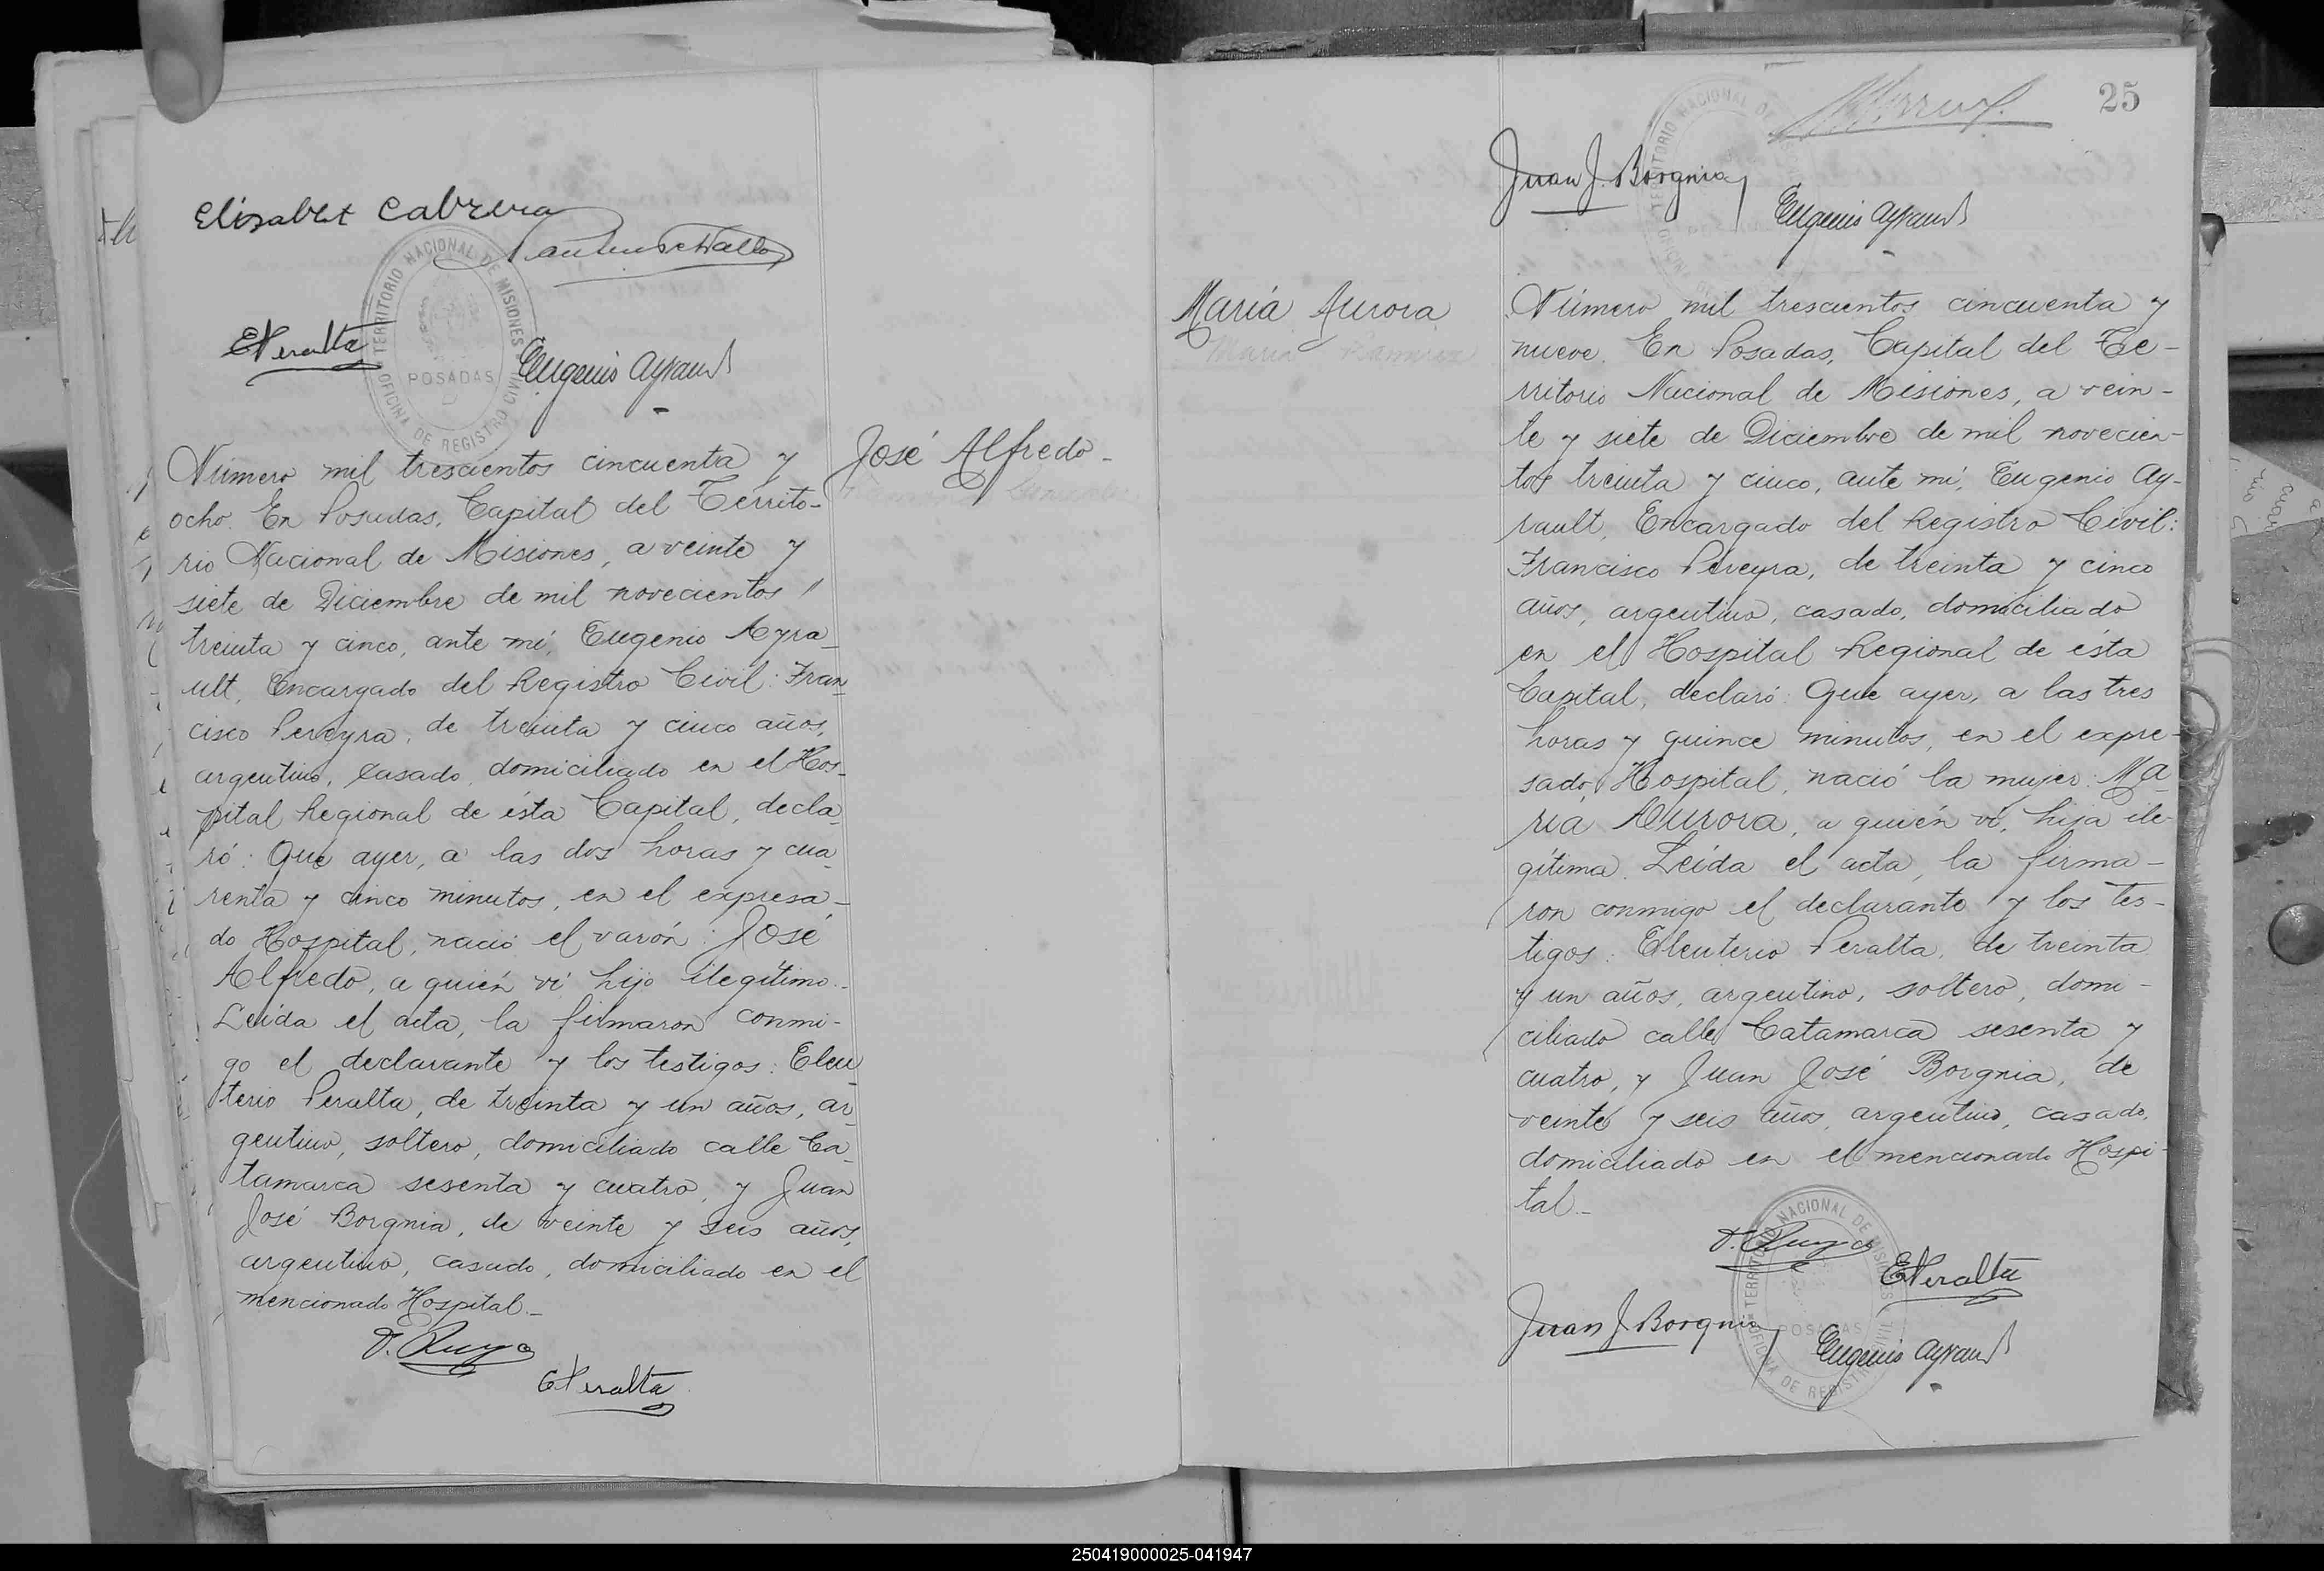 Elisabet Cabrera
EPeralta
Eugenio Ayrault
TERRITORIO NACIONAL DE MISIONES
POSADAS
OFICINA DE REGISTRO CIVIL
José Alfredo_
Número mil trescientos cincuenta y
ocho. En Posadas, Capital del Territo-
rio Nacional de Misiones, a veinte y
siete de Diciembre de mil novecientos
treinta y cinco, ante mí, Eugenio Ayra_
ult, Encargado del Registro Civil: Fran_
cisco Pereyra, de treinta y cinco años,
argentino, casado, domiciliado en el Hos_
pital Regional de ésta Capital, decla_
ró: Que ayer, a las dos horas y cua_
renta y cinco minutos, en el expresa_
do Hospital, nació el varón: José
Alfredo, a quién ví hijo ilegítimo._
Leída el acta, la firmaron conmi-
go el declarante y los testigos: Eleu_
terio Peralta, de treinta y un años, ar_
gentino, soltero, domiciliado calle Ca_
tamarca sesenta y cuatro, y Juan
José Borgnia, de veinte y seis años,
argentino, casado, domiciliado en el
mencionado Hospital._
EPeralta
25
Juan J. Borgnia
Eugenio Ayrault
TERRITORIO NACIONAL DE
María Aurora
Número mil trescientos cincuenta y
nueve. En Posadas, Capital del Te-
rritorio Nacional de Misiones, a vein-
te y siete de Diciembre de mil novecien-
tos treinta y cinco, ante mí, Eugenio Ay-
rault, Encargado del Registro Civil:
Francisco Pereyra, de treinta y cinco
años, argentino, casado, domiciliado
en el Hospital Regional de ésta
Capital, declaró: Que ayer, a las tres
horas y quince minutos, en el expre-
sado Hospital, nació la mujer: Ma_
ría Aurora, a quién ví, hija ile-
gítima. Leída el acta, la firma-
ron conmigo el declarante y los tes-
tigos: Eleuterio Peralta, de treinta
y un años, argentino, soltero, domi-
ciliado calle Catamarca sesenta y
cuatro, y Juan José Borgnia, de
veinte y seis años, argentino, casado,
domiciliado en el mencionado Hospi-
tal._
EPeralta
Juan J. Borgnia
Eugenio Ayrault
TERRITORIO NACIONAL DE MISIONES
POSADAS
OFICINA DE REGISTRO CIVIL
250419000025-041947